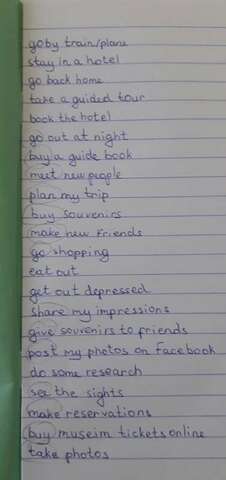 go by train/plane
stay in a hotel
go back home
take a guided tour
book the hotel
go out at night
buy a guide book
meet new people
plan my trip
buy souvenirs
make new friends
go shopping
eat out
get out depressed
share my impressions
give souvenirs to friends
post my photos on Facebook
do some research
see the sights
make reservations
buy museim tickets online
take photos